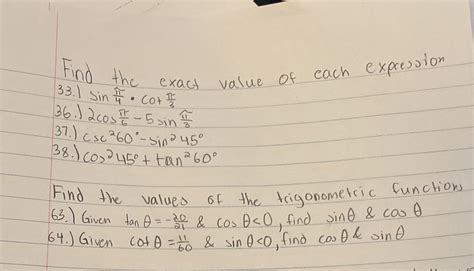 Find the exact value of each expression
33.) sin π/4 • cot π/3
36.) 2cos π/6 - 5 sin π/3
37.) csc²60° - sin²45°
38.) cos²45° + tan²60°
Find the values of the trigonometric functions
63.) Given tan θ = -20/21 & cos θ<0, find sinθ & cos θ
64.) Given cot θ = 11/60 & sin θ<0, find cos θ & sin θ